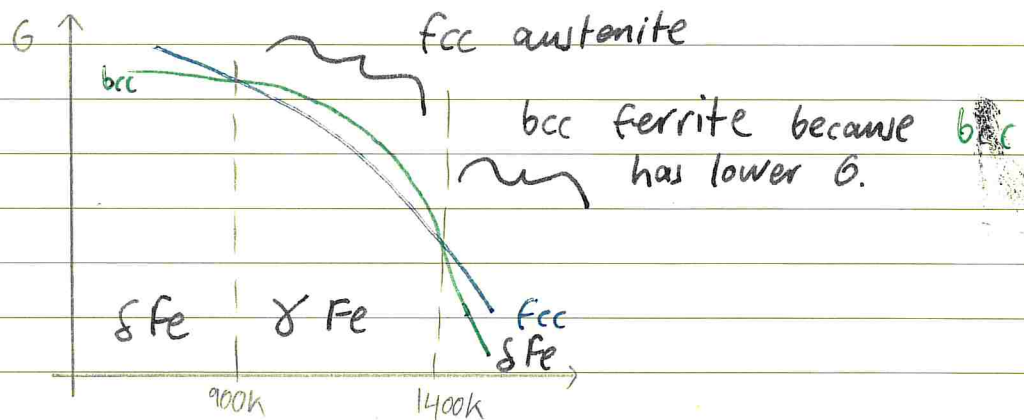 G
fcc austenite
bcc
bcc ferrite because bcc
has lower G.
δ Fe
γ Fe
fcc
δ Fe
900K
1400K